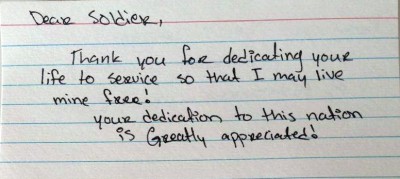 Dear Soldier,
Thank you for dedicating your
life to service so that I may live
mine free!
your dedication to this nation
is Greatly appreciated!